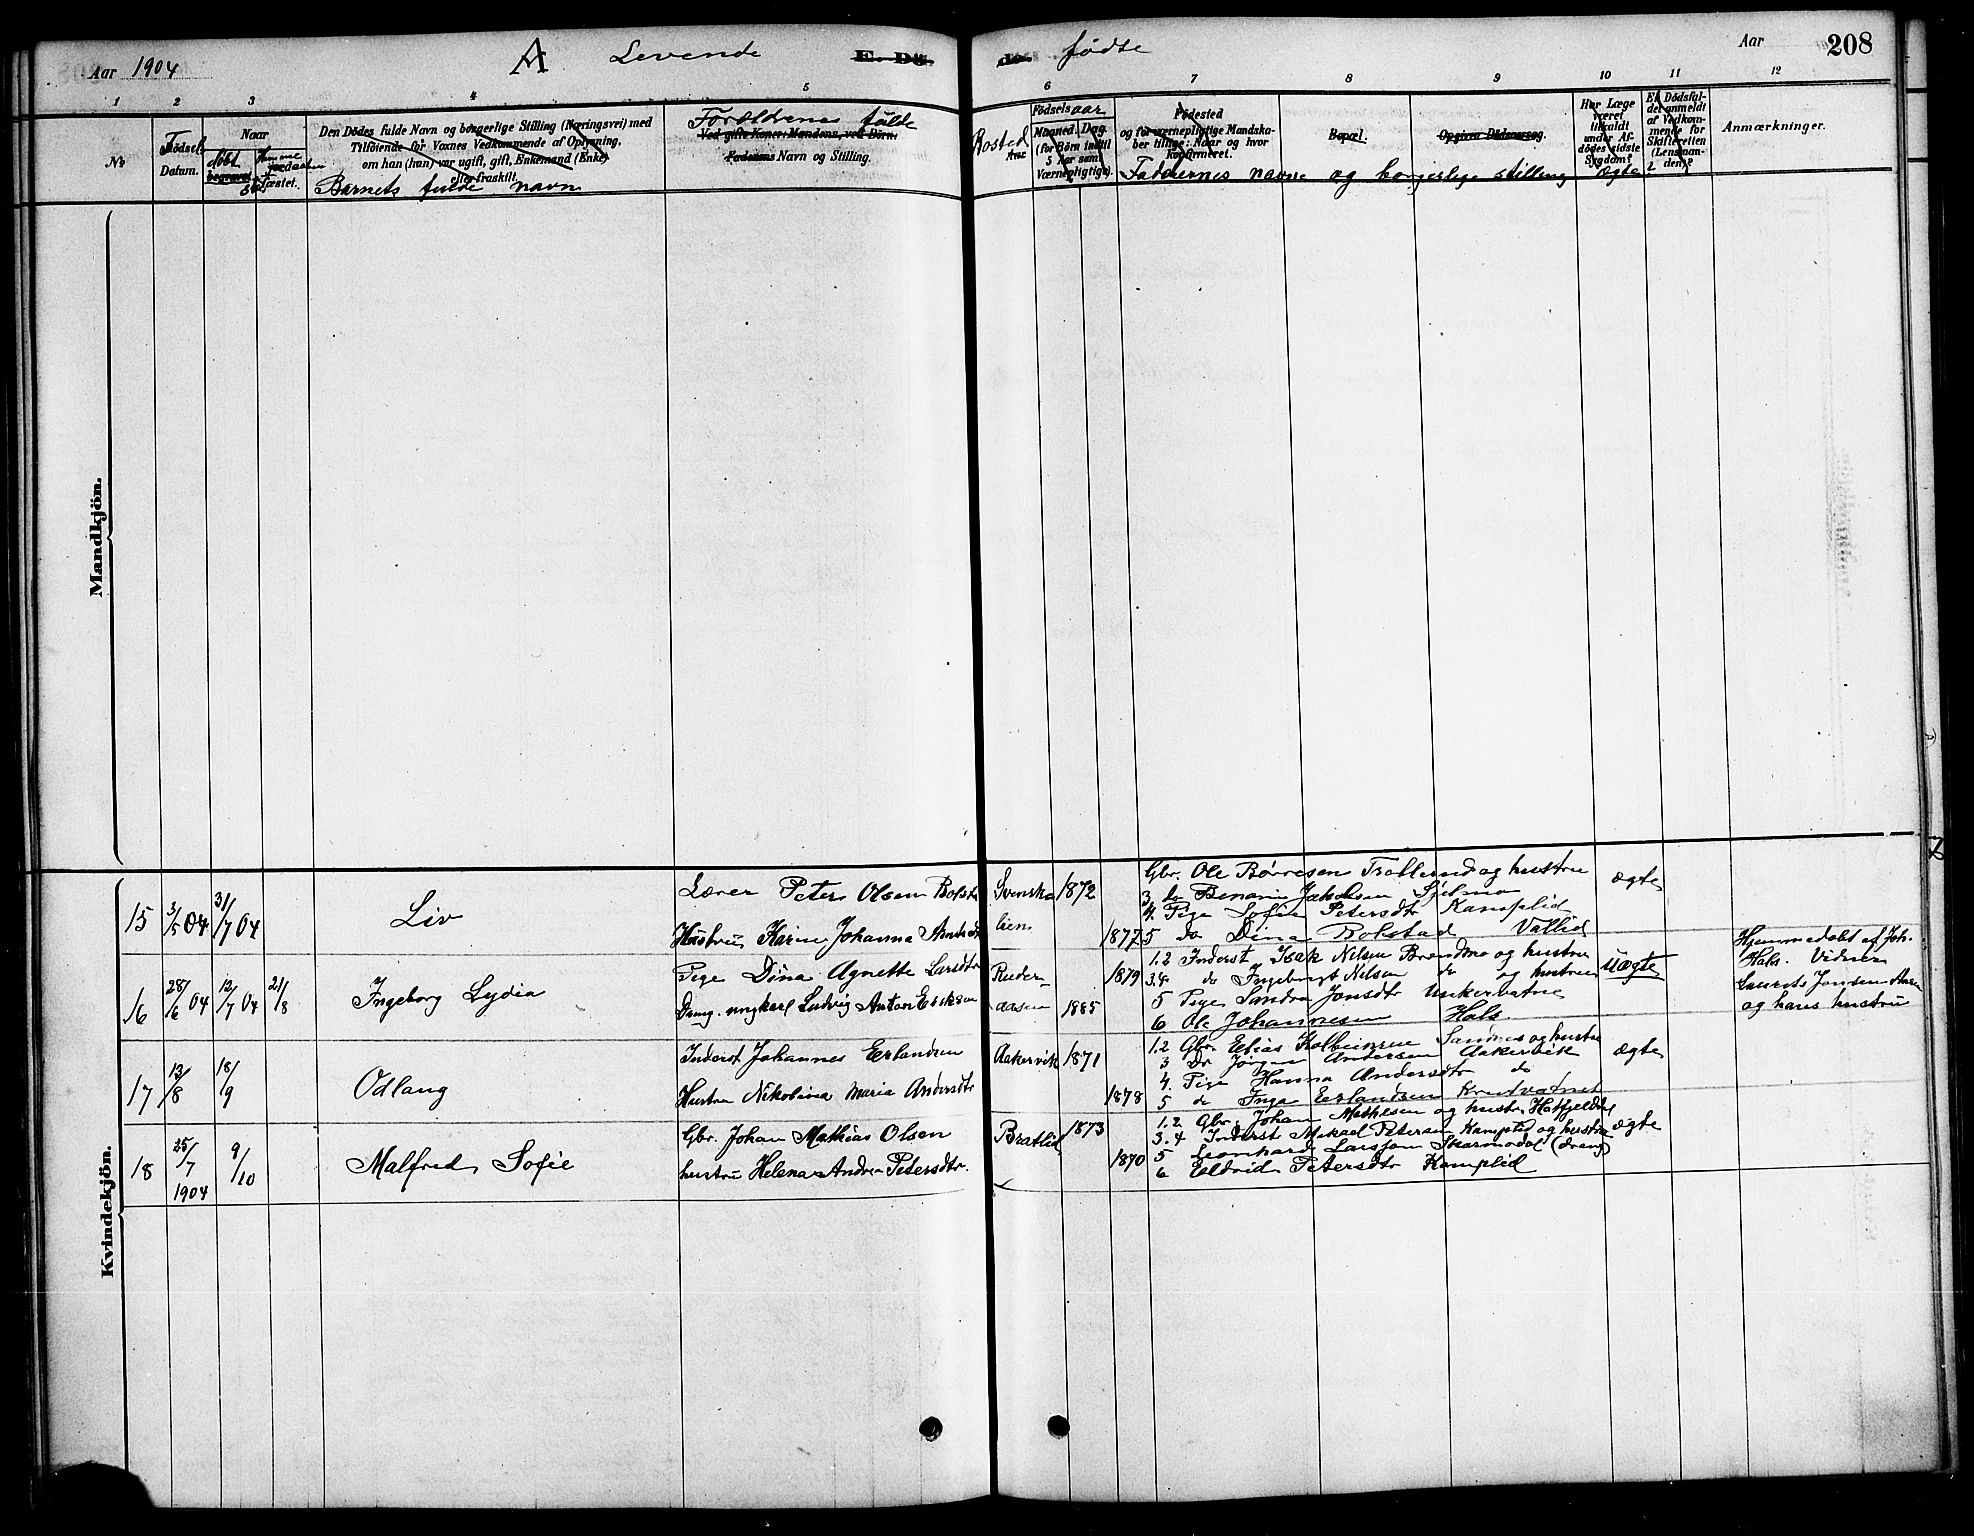 Aar 1904
A Levende E. Dö
de. fødte
Aar
208
1 2 3 4 5 6 7 8 9 10 11 12
No
Fødsels
Datum.
Naar
døbt
begravet
Hjemme
fæstet.
Den Dödes fulde Navn og borgerlige Stilling (Næringsvei) med
Tilföiende for Voxnes Vedkommende af Oplysning,
om han (hun) var ugift, gift, Enkemand (Enke)
eller fraskilt.
Barnets fulde navn
Forældrenes fulde
Ved gifte Koner: Mandens, ved Börn:
Faderens Navn og Stilling.
Bosted
Aar
Födselsaar
Maaned. Dag.
(for Börn indtil
5 Aar samt
Værnepligtige).
Födested
og for værnepligtige Mandska-
ber tillige: Naar og hvor
konfirmeret.
Bopæl.
Opgiven Dödsaarsag.
Faddernes navne og borgerlige stilling
Har Læge
været
tilkaldt
under Af-
dödes sidste
Sygdom?
ægte
Er Dödsfal-
det anmeldt
af Vedkom-
mende for
Skifteretten
(Lensman-
den)?
Anmærkninger.
Mandkjön.
Kvindekjön.
15 3/5 04 31/7 04 Liv
Lærer Peter Olsen Bolstad
Hustru Karine Johanna
Svenska
lien
1872
1877
Gbr. Ole Børresen Trollund og hustru
3 do Benamin Jakobsen
4. Pige Sofie Petersdtr Kamplid
5 do Dina Bolstad Vallid
ægte
16 28/6 04 12/7 04 21/8 Ingeborg Lydia
Pige Dina Agnette Larsdtr
ungkarl Ludvig Anton
aasen
1879
1885
1.2 Inderst Isak Nilsen Brandmo og hustru
3.4 do Ingebrigt Nilsen do og hustru
5 Pige Sandra Jonsdtr Unkervatne
6 Ole Johannesen Hals
uægte
Hjemmedøbt af Joh.
Hals. Vidner
Laurits Jonsen
og hans hustru
17 13/8 18/9 Odlaug
Inderst Johannes Erlandsen
Hustru Nikolina Maria Andersdtr
Aakervik
1871
1878
1.2 Gbr. Elias Kolbeinsen Sandnes og hustru
3 Do Jörgen Andersen Aakervik
4. Pige Hanna Andersdtr do
5 do Inga Erlandsen Krutvatnet
ægte
18 25/7 1904 9/10 Malfred Sofie
Gbr. Johan Mathias Olsen
hustru Helena Andrea Petersdtr.
Bratlid
1873
1870
1.2 Gbr. Johan Mathisen og hustru Hatfjelddal
3.4 Inderst Mikael Petersen Kamplid og hustru
5 Leonhard Larsson Skarmodal (dreng)
6 Eldrid Petersdtr Kamplid
ægte